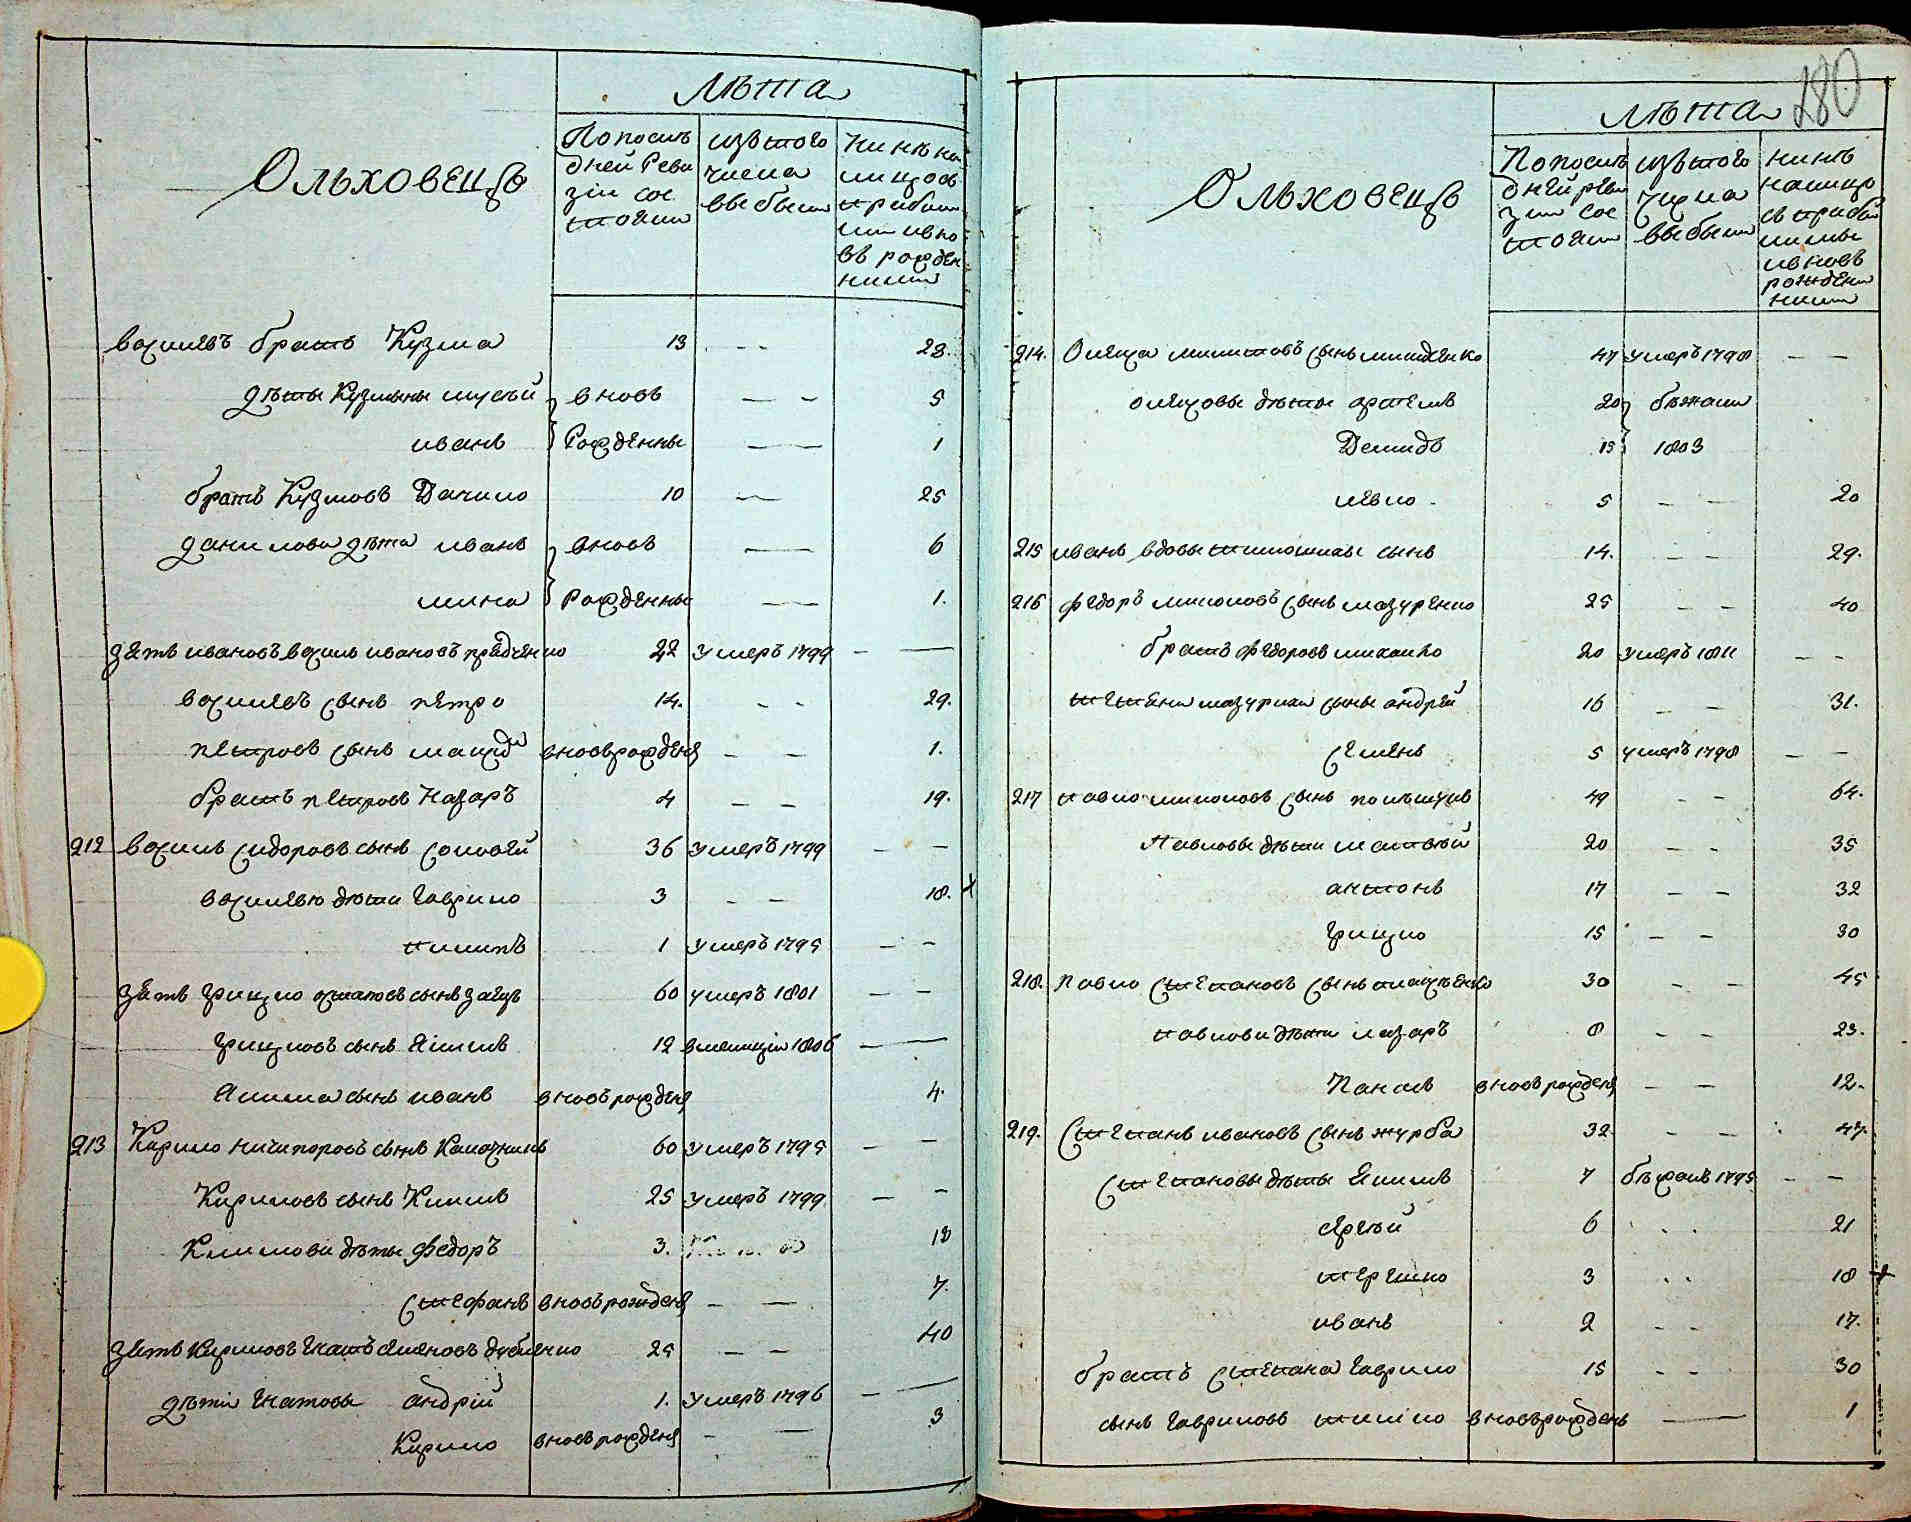 лѣта
Ольховецъ
По послѣ
дней Реви
зіи сос
тояли
изътого
числа
выбыли
Нинѣ на
лицо съ
прибил
ими вно
въ рожден
ними
васильевъ братъ Кузма 13 - - 28.
дѣты Кузмыны вновь - - 5
иванъ Рожденны - 1
братъ Кузмовъ Данило 10 - 25
данилови дѣти иванъ вновь - 6
мина Рожденны - 1.
зять ивановъ василь ивановъ 22 умеръ 1799 - -
васильевъ сынъ петро 14. - - 29.
петровъ сынъ вновърожденъ - - 1.
братъ петровъ Назаръ 4 - - 19.
212 василь сидоровъ сынъ соловей 36 умеръ 1799 - -
васильевы дѣти гаврило 3 - - 18. +
пилипъ 1 умеръ 1795 - -
зять грицко сынъ заецъ 60 умеръ 1801 - -
грицковъ сынъ якимъ 12 вмилиціи 1806 - -
якима сынъ иванъ вновърожденъ 4.
213 Кирило ничипоровъ сынъ 60 умеръ 1795 - -
Кириловъ сынъ Климъ 25 умеръ 1799 - -
Климови дѣты федоръ 3. 18
стефанъ вновърожденъ - - 7.
зять Кириловъ гнатъ семеновъ 25 - - 40
дѣти гнатовы андрій 1. умеръ 1796 - -
Кирило вновърожденъ - - 3
280
лѣта
Ольховецъ
По послѣ
дней реви
зіи сос
тояли
изътого
числа
выбыли
нинѣ
налицо
съ прибы
лими
ивновъ
рожден
ними
214. Олекса сынъ 47 умеръ 1798 - -
олексовы дѣты артемъ 20 бѣжали
Демидъ 15 1803
левко 5 - - 20
215 иванъ вдовы сынъ 14. - - 29.
216 федоръ сынъ мазуренко 25 - - 40
братъ федоровъ михайло 20 умеръ 1811 - -
степана мазурка сыны андрей 16 - - 31.
семенъ 5 умеръ 1798 - -
217 павло сынъ 49 - - 64.
Павловы дѣти матвѣй 20 - - 35
антонъ 17 - - 32
грицко 15 - - 30
218. павло степановъ сынъ 30 - - 45
павлови дѣти лазаръ 8 - - 23.
Панасъ вновърожденъ - - 12.
219. Степанъ ивановъ сынъ журба 32 - - 47.
степановы дѣты якимъ 7 бѣжалъ 1795 - -
сергѣй 6 21
терешко 3 18 +
иванъ 2 - - 17.
братъ степана гаврило 15 - - 30
сынъ гавриловъ вновърожденъ - 1